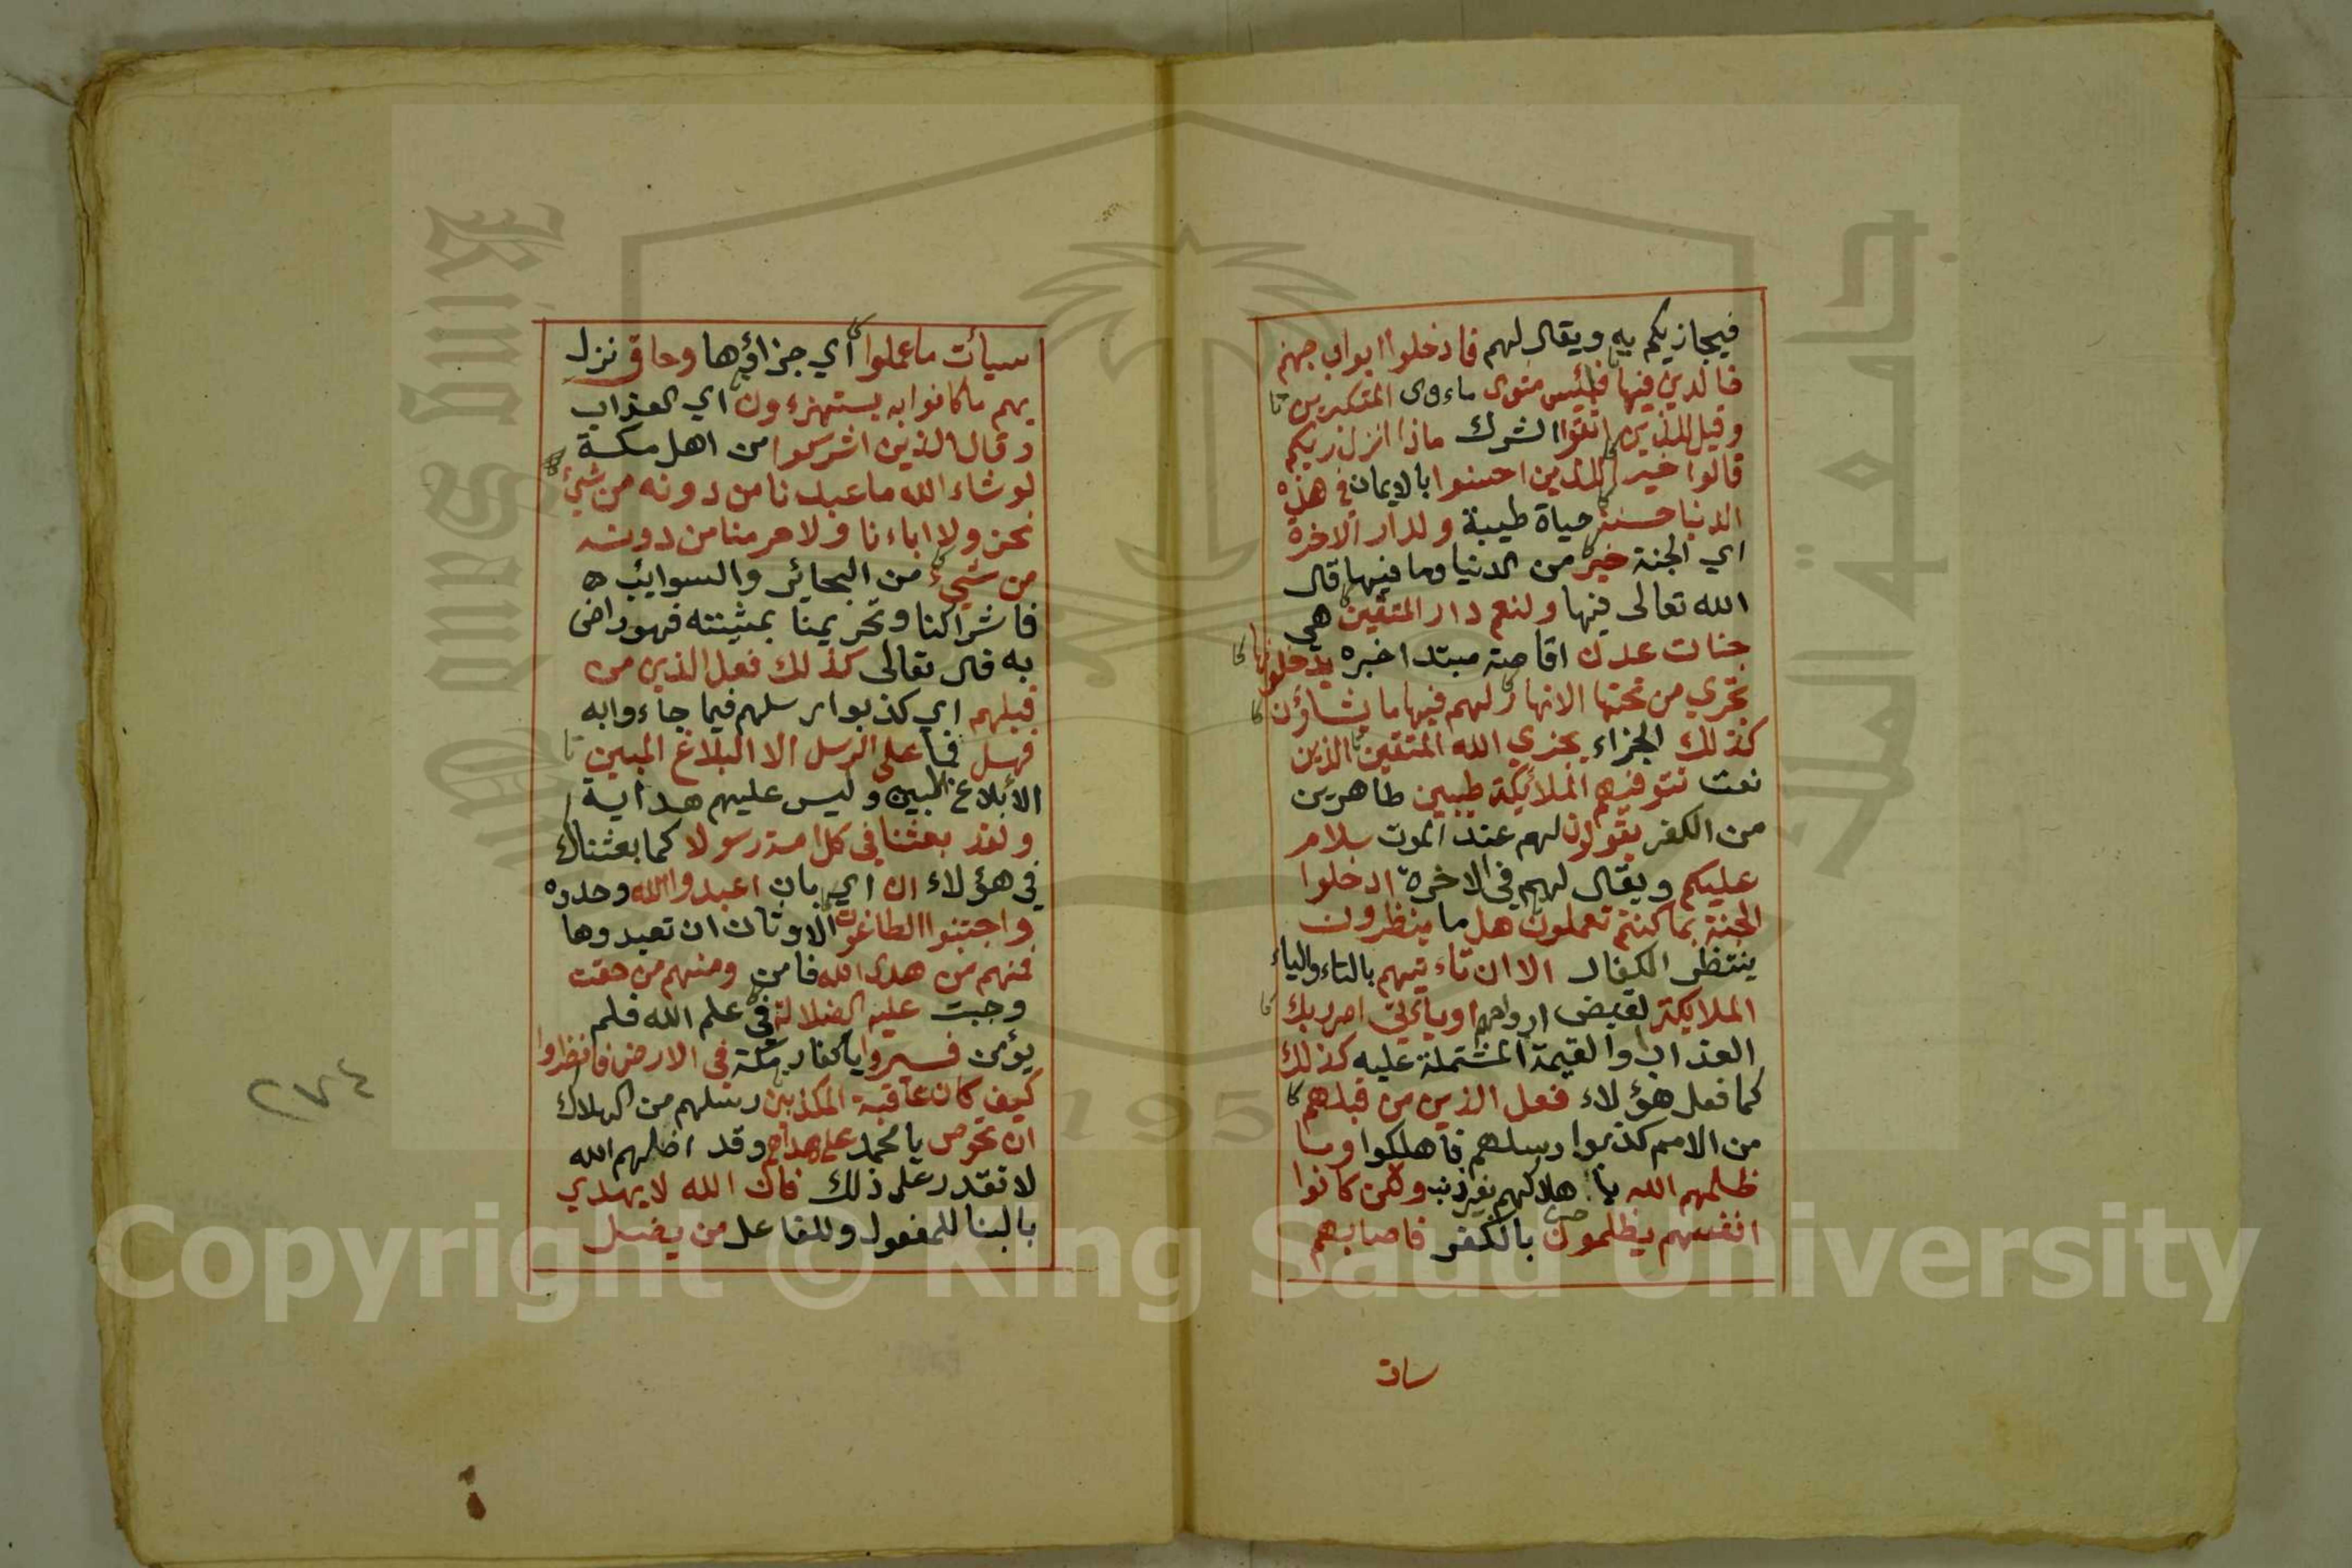 فيجازيكم به ويقال لهم فادخلوا ابواب جهنم
خالدين فيها فلبئس مثوى ماءوى المتكبرين
وقيل للذين اتقوا الشرك ماذا انزل ربكم
قالوا خيرا للذين احسنوا بالايمان في هذه
الدنيا حسنة حياة طيبة ولدار الاخرة
اي الجنة خير من الدنيا وما فيها قال
الله تعالى فيها ولنعم دار المتقين هي
جنات عدن اقامة مبتدا خبره يدخلونها
تجري من تحتها الانهار لهم فيها ما يشاؤن
كذلك الجزاء يجزي الله المتقين الذين
نعت تتوفيهم الملائكة طيبين طاهرين
من الكفر يقولون لهم عند الموت سلام
عليكم ويقال لهم في الاخرة ادخلوا
الجنة بما كنتم تعملون هل ما ينظرون
ينتظر الكفار الا ان تاءتيهم بالتاء والياء
الملايكة لقبض ارواحهم او يأتي امر ربك
العذاب او القيمة المشتملة عليه كذلك
كما فعل هؤلاء فعل الذين من قبلهم
من الامم كذبوا رسلهم فاهلكوا وما
ظلمهم الله باهلاكهم بغير ذنب ولكن كانوا
انفسهم يظلمون بالكفر فاصابهم
سيات
سيأت ما عملوا اي جزاؤها وحاق نزل
بهم ما كانوا به يستهزءون اي العذاب
وقال الذين اشركوا من اهل مكة
لو شاء الله ما عبدنا من دونه من شيء
نحن ولا اباءنا ولا حرمنا من دونه
من شيء من البحائر والسوايب
فاشراكنا وتحريمنا بمشيئته فهو راض
به قال تعالى كذلك فعل الذين من
قبلهم اي كذبوا رسلهم فيما جاءوا به
فهل فما على الرسل الا البلاغ المبين
الابلاغ المبين وليس عليهم هداية
ولقد بعثنا في كل امة رسولا كما بعثناك
في هؤلاء ان اي بان اعبدوا الله وحدوه
واجتنبوا الطاغوت الاوثان ان تعبدوها
فمنهم من هدى الله فامن ومنهم من حقت
وجبت عليه الضلالة في علم الله فلم
يؤمن فسيروا يا كفار مكة في الارض فانظروا
كيف كان عاقبة المكذبين رسلهم من الهلاك
ان تحرص يا محمد على هداهم وقد اضلهم الله
لا تقدر على ذلك فان الله لا يهدي
بالبنا للمفعول وللفاعل من يضل
٢٧٤
Copyright © King Saud University
King Saud University
جامعة الملك
195